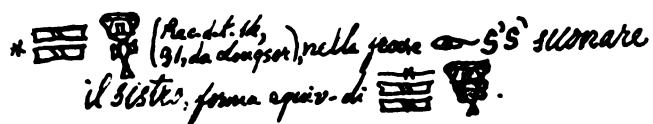 * (Rec. d. t. 14, 91, da Louqsor), nella frase S'S' suonare
il sistro, forma equiv. di .